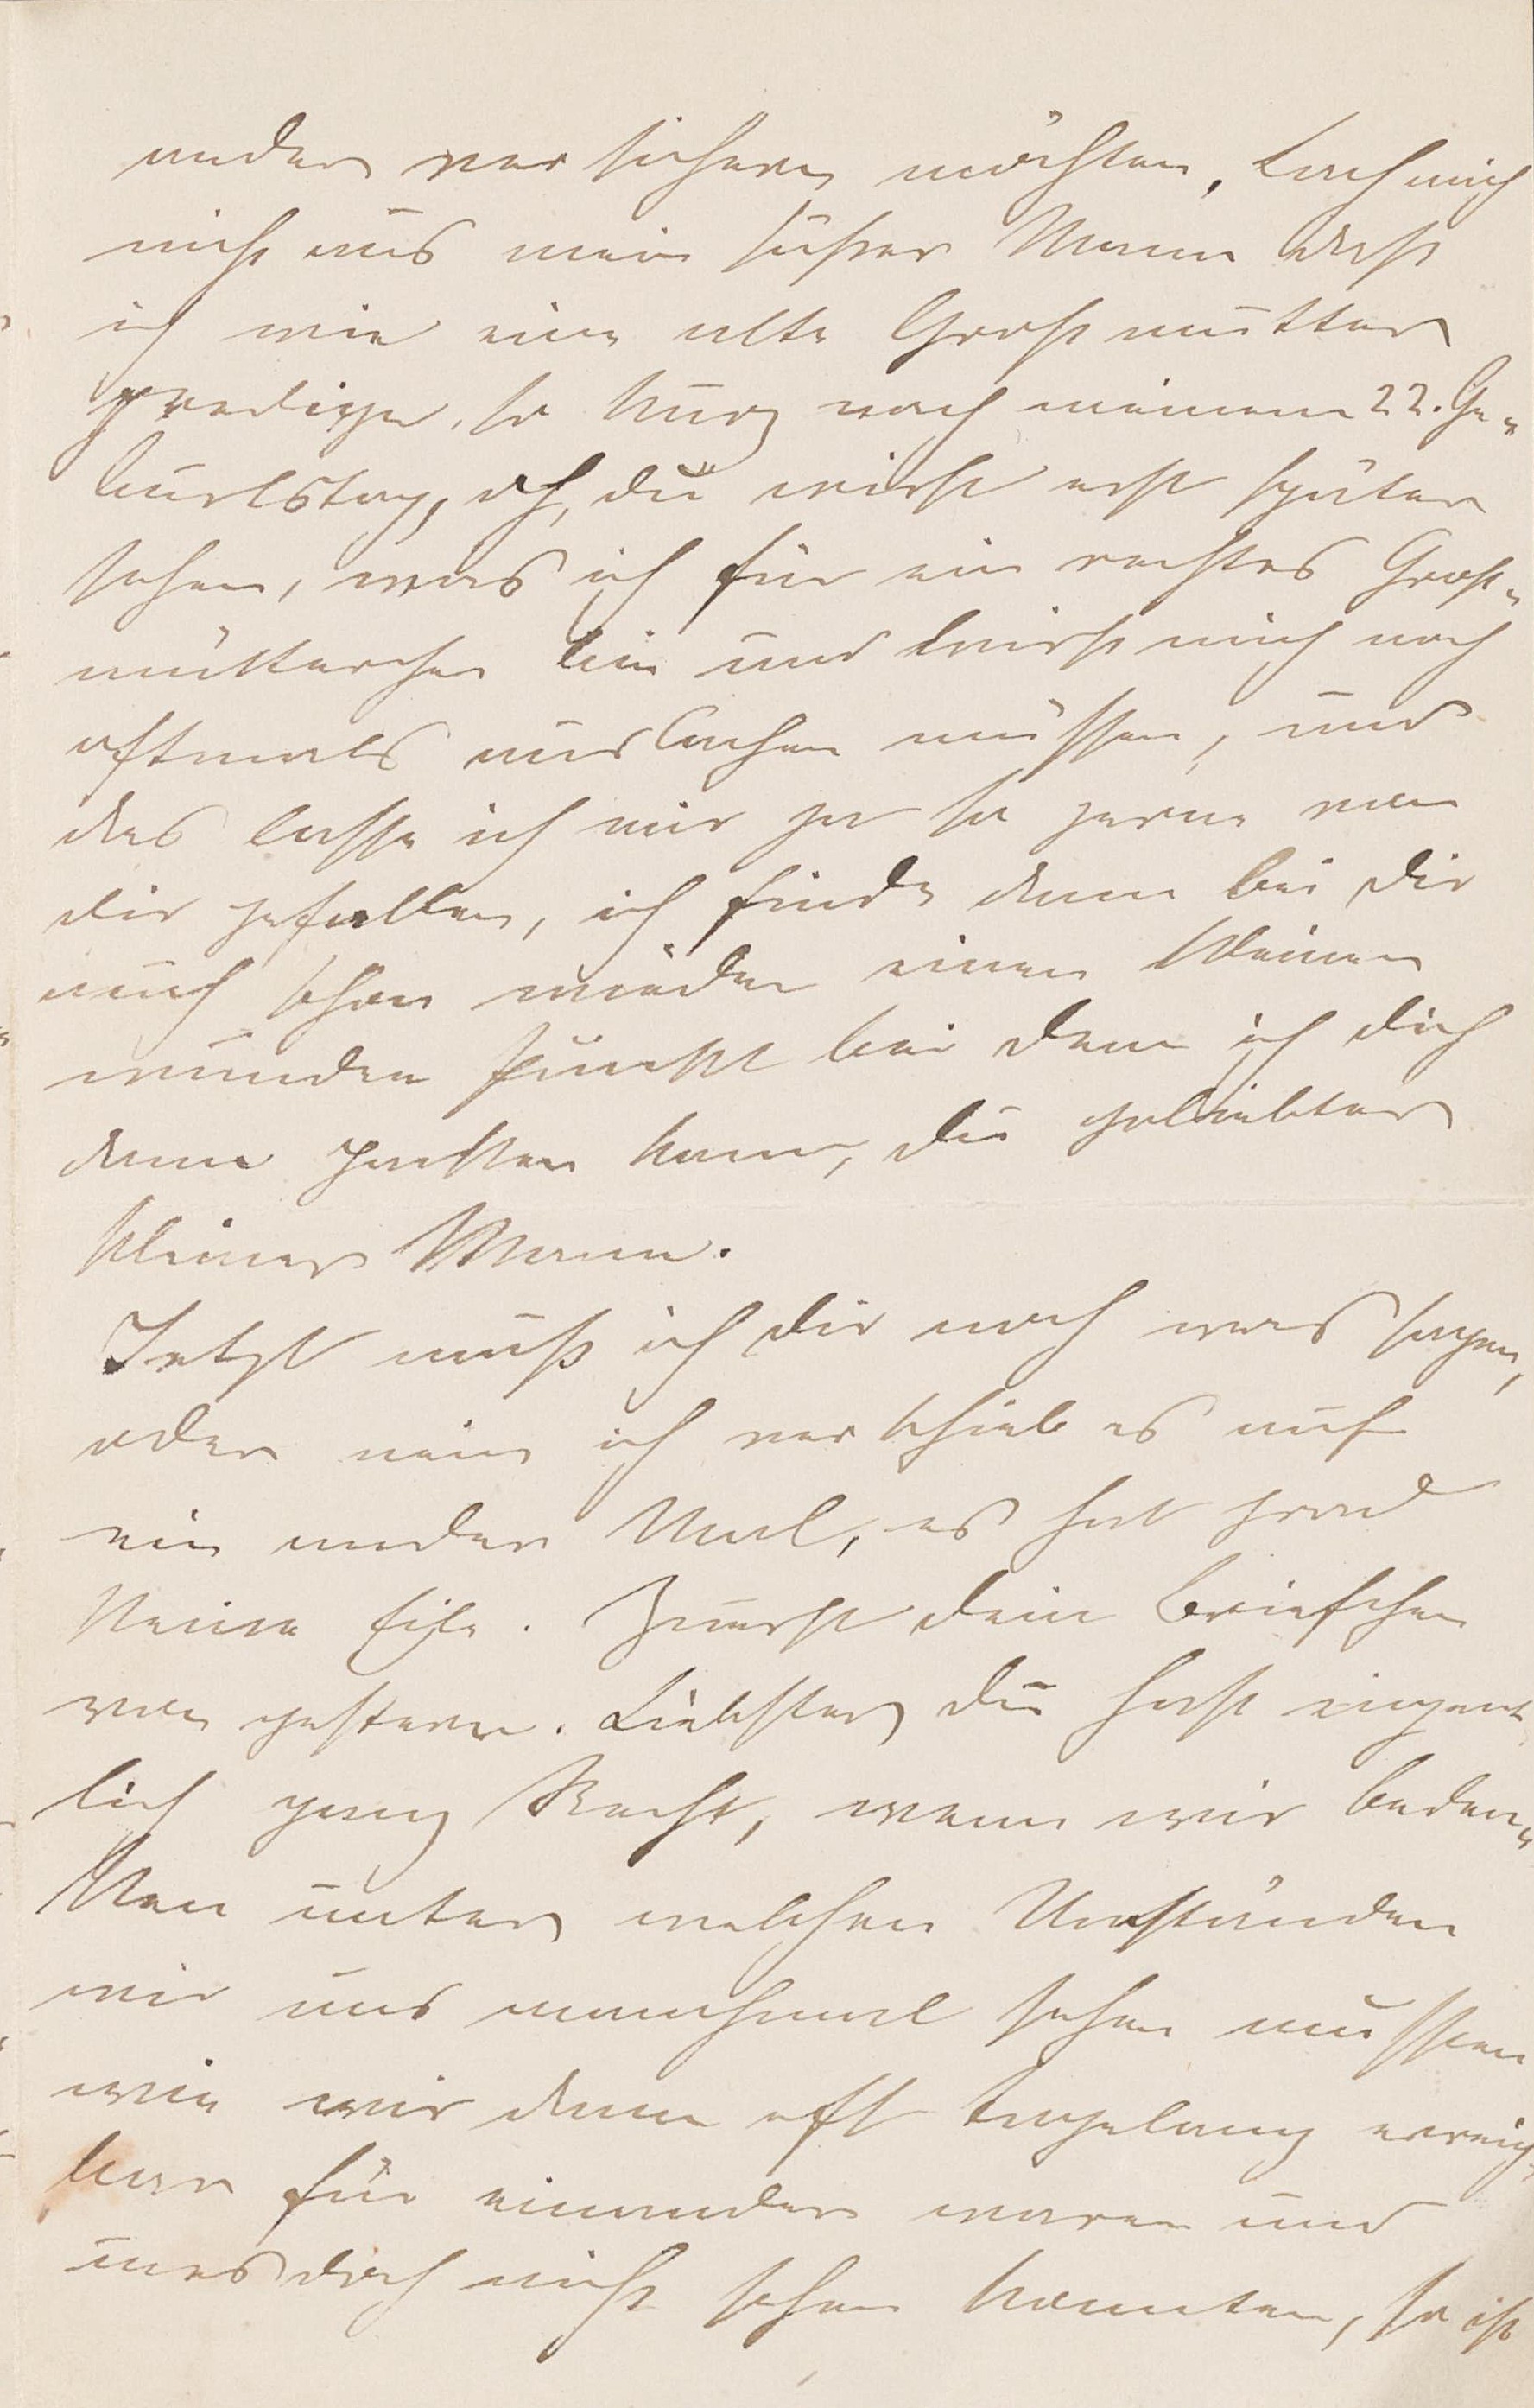 ander versichern möchten. Lach mich
nicht aus mein süßer Mann daß
ich wie eine alte Großmutter
predige, so kurz nach meinem 22. Ge-
burtstag, oh, du wirst erst später
sehen, was ich für ein rechtes Groß-
mütterchen bin und wirst mich noch
oftmals auslachen müssen, und
das lasse ich mir ja so gerne von
dir gefallen, ich finde dann bei dir
auch schon wieder einen kleinen
wunden Punkt bei dem ich dich
dann packen kann, du geliebter
kleiner Mann.
Jetzt muß ich dir noch was sagen,
oder nein ich verschieb es auf
ein ander Mal, es hat grad
keine Eile. Zuerst dein Briefchen
von gestern. Liebster du hast eigent
lich ganz Recht, wenn wir beden-
ken unter welchen Umständen
wir uns manchmal sehen mussten
wie wir dann oft tagelang erreich-
bar für einander waren und
uns doch nicht sehen konnten, so ist